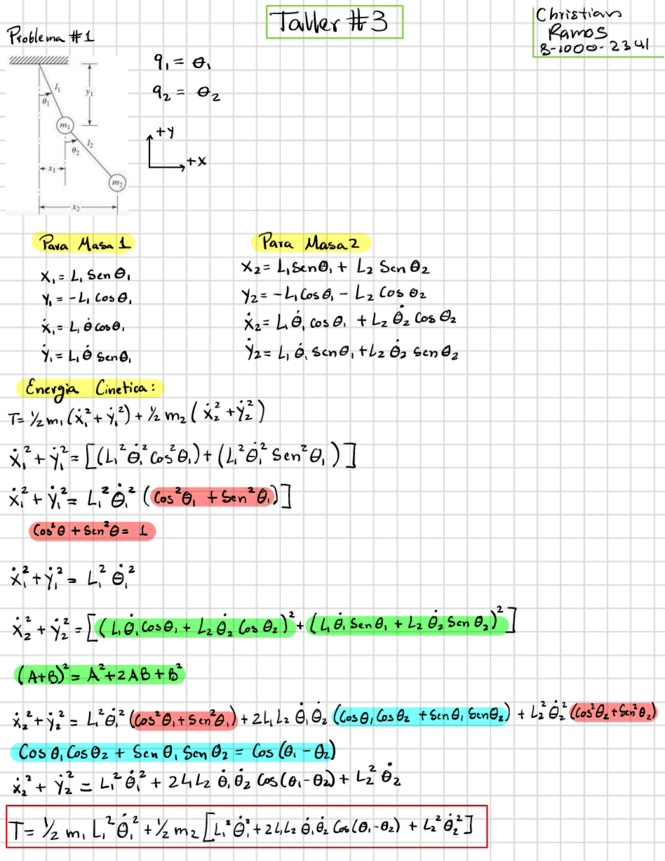 Taller #3
Christian
Ramos
8-1000-2341
Problema #1
q₁ = θ₁
q₂ = θ₂
l₁
y₁
θ₁
m₁
l₂
θ₂
x₁
m₂
x₂
+Y
+X
Para Masa 1
X₁ = L₁ Sen θ₁
Y₁ = -L₁ Cos θ₁
Ẋ₁ = L₁ θ̇ Cos θ₁
Ẏ₁ = L₁ θ̇ Sen θ₁
Para Masa 2
X₂ = L₁ Sen θ₁ + L₂ Sen θ₂
Y₂ = -L₁ Cos θ₁ - L₂ Cos θ₂
Ẋ₂ = L₁ θ̇₁ Cos θ₁ + L₂ θ̇₂ Cos θ₂
Ẏ₂ = L₁ θ̇₁ Sen θ₁ + L₂ θ̇₂ Sen θ₂
Energia Cinetica:
T = ½ m₁ (ẋ₁² + ẏ₁²) + ½ m₂ (ẋ₂² + ẏ₂²)
ẋ₁² + ẏ₁² = [(L₁² θ̇₁² Cos² θ₁) + (L₁² θ̇₁² Sen² θ₁)]
ẋ₁² + ẏ₁² = L₁² θ̇₁² (Cos² θ₁ + Sen² θ₁)]
Cos² θ + Sen² θ = 1
ẋ₁² + ẏ₁² = L₁² θ̇₁²
ẋ₂² + ẏ₂² = [(L₁ θ̇₁ Cos θ₁ + L₂ θ̇₂ Cos θ₂)² + (L₁ θ̇₁ Sen θ₁ + L₂ θ̇₂ Sen θ₂)²]
(A+B)² = A² + 2AB + B²
ẋ₂² + ẏ₂² = L₁² θ̇₁² (Cos² θ₁ + Sen² θ₁) + 2L₁L₂ θ̇₁θ̇₂ (Cos θ₁ Cos θ₂ + Sen θ₁ Sen θ₂) + L₂² θ̇₂² (Cos² θ₂ + Sen² θ₂)
Cos θ₁ Cos θ₂ + Sen θ₁ Sen θ₂ = Cos (θ₁ - θ₂)
ẋ₂² + ẏ₂² = L₁² θ̇₁² + 2L₁L₂ θ̇₁θ̇₂ Cos (θ₁ - θ₂) + L₂² θ̇₂
T = ½ m₁ L₁² θ̇₁² + ½ m₂ [L₁² θ̇₁² + 2L₁L₂ θ̇₁θ̇₂ Cos (θ₁ - θ₂) + L₂² θ̇₂²]